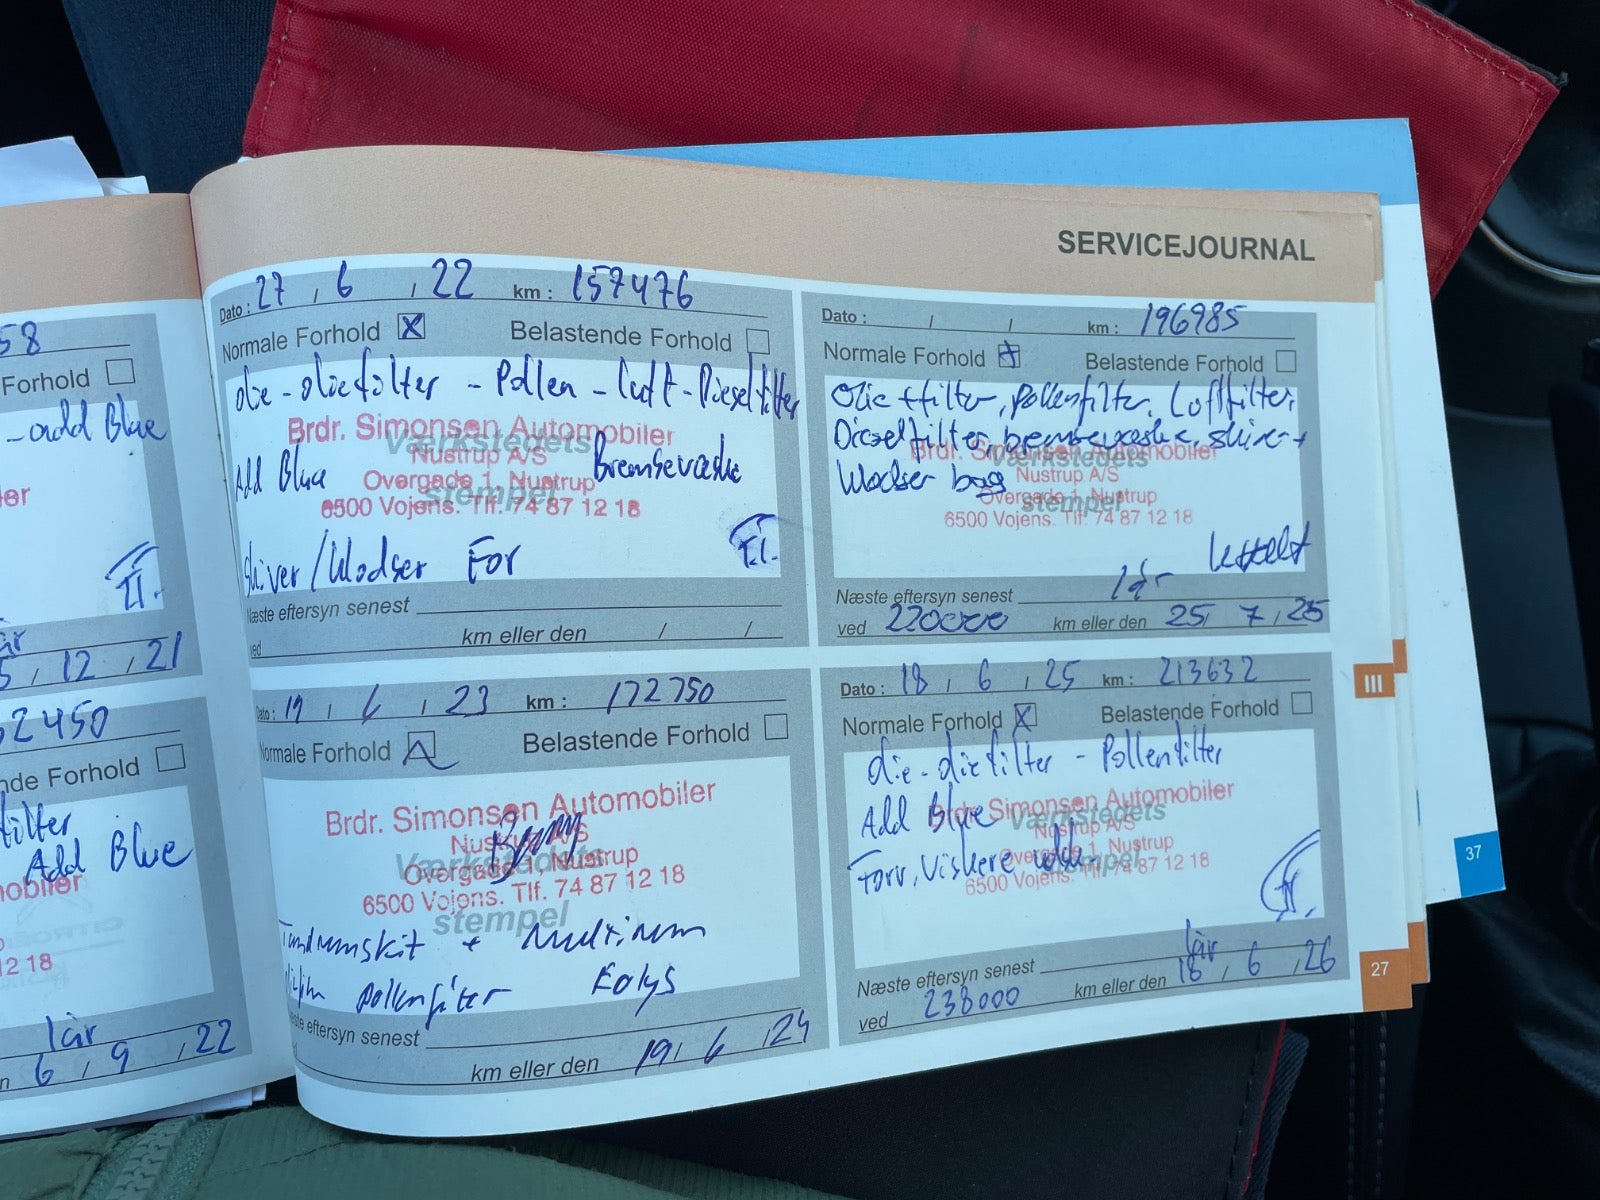 58
Forhold
-add Blue
ler
I.I.
år
5 / 12 / 21
2450
nde Forhold
filter
Add Blue
mobiler
12 18
1år
6 / 9 / 22
SERVICEJOURNAL
Dato : 27 / 6 / 22 km : 157476
Normale Forhold X Belastende Forhold
olie - oliefilter - Pollen - luft - Dieselfilter
Brdr. Simonsen Automobiler
Værkstedets
Nustrup A/S
Add Blue Bremsevæske
Overgade 1, Nustrup
stempel
6500 Vojens. Tlf. 74 87 12 18
Skiver/klodser For
Næste eftersyn senest
ved km eller den / /
Dato : 19 / 6 / 23 km : 172750
Normale Forhold Belastende Forhold
Brdr. Simonsen Automobiler
Nustrup A/S
Værkstedets
Overgade 1, Nustrup
6500 Vojens. Tlf. 74 87 12 18
stempel
Tandremskit + Multirem
pollenfilter Eolys
Næste eftersyn senest
km eller den 19 / 6 / 24
Dato : / / km : 196985
Normale Forhold Belastende Forhold
Olie + filter, pollenfilter, Luftfilter,
Dieselfilter, bremsevæske, skiver +
Brdr. Simonsen Automobiler
Værkstedets
klodser bag
Nustrup A/S
Overgade 1, Nustrup
stempel
6500 Vojens. Tlf. 74 87 12 18
Næste eftersyn senest 1år
ved 220000 km eller den 25 / 7 / 25
Dato : 18 / 6 / 25 km : 213632
Normale Forhold X Belastende Forhold
olie - oliefilter - Pollenfilter
Add Blue
Brdr. Simonsen Automobiler
Værkstedets
Nustrup A/S
Forr, Viskere
Overgade 1, Nustrup
stempel
6500 Vojens. Tlf. 74 87 12 18
Næste eftersyn senest 1år
ved 238000 km eller den 18 / 6 / 26
III
27
37